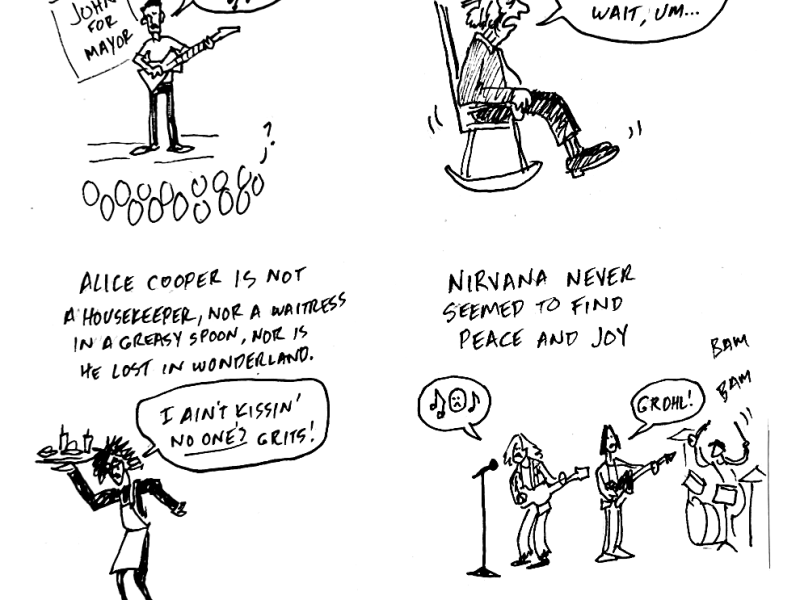 JOHN
FOR
MAYOR
WAIT, UM...
?
ALICE COOPER IS NOT
A HOUSEKEEPER, NOR A WAITRESS
IN A GREASY SPOON, NOR IS
HE LOST IN WONDERLAND.
I AIN'T KISSIN'
NO ONE'S GRITS!
NIRVANA NEVER
SEEMED TO FIND
PEACE AND JOY
GROHL!
BAM
BAM